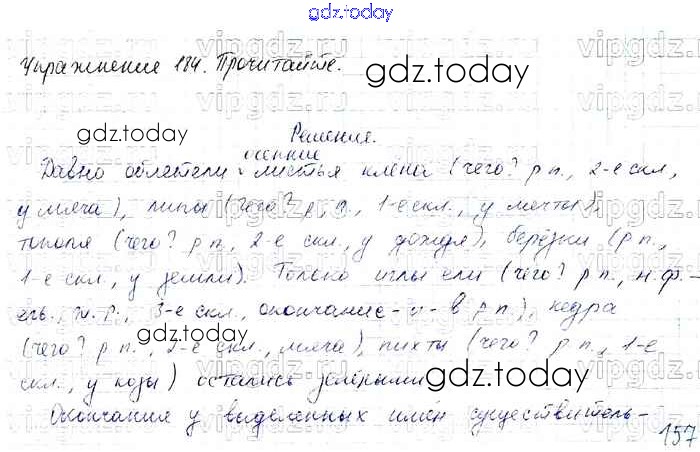 gdz.today
Упражнение 184. Прочитайте.
gdz.today
gdz.today
Решение.
осенние
Давно облетели листья клёна (чего? р п., 2-е скл.,
у мяча), липы (чего? р. п., 1-е скл., у мечты),
тополя (чего? р п., 2-е скл., у дождя), берёзки (р п.,
1-е скл., у земли). Только иглы ели (чего? р п., н. ф. -
ель, ж. р., 3-е скл., окончание -и- в р п.), кедра
gdz.today
(чего? р п., 2-е скл., мяча), пихты (чего? р п., 1-е
скл., у козы) остались зелёными.
gdz.today
Окончания у выделенных имён существитель-
157